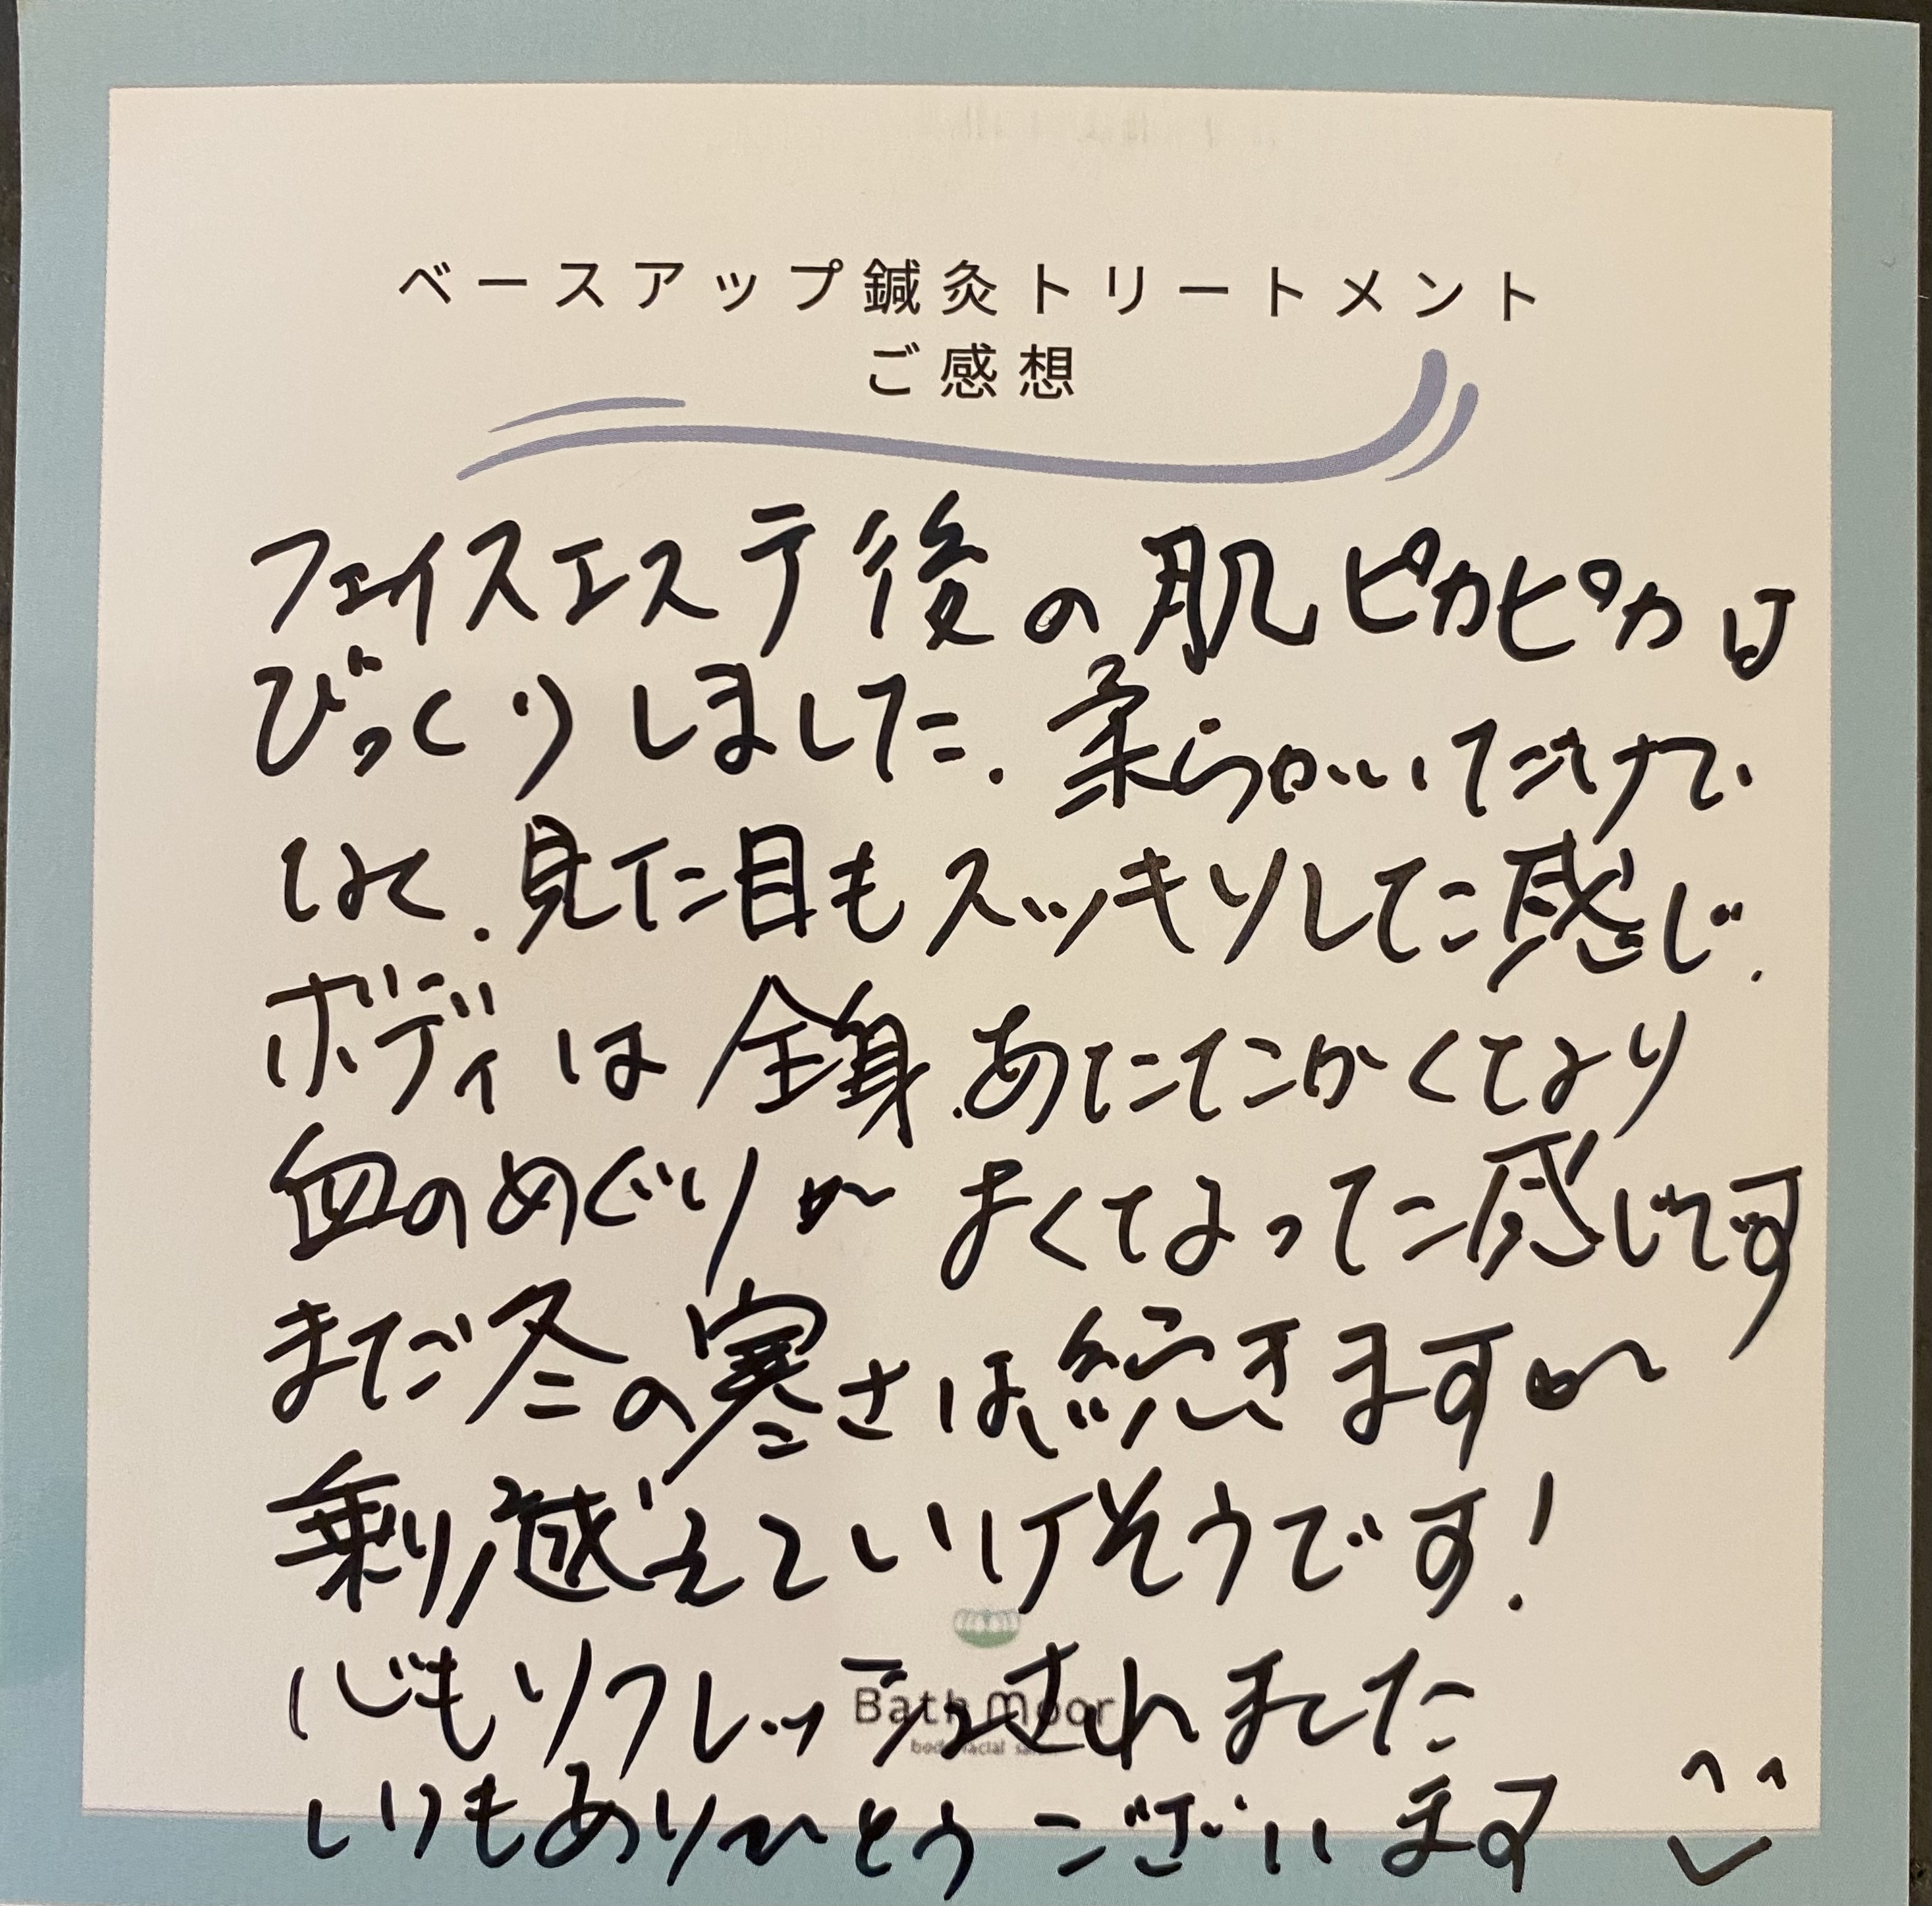 ベースアップ鍼灸トリートメント
ご感想
フェイスエステ後の肌ピカピカは
びっくりしました. 柔らかいだけで
なく. 見た目もスッキリした感じ.
ボディは全身.あたたかくなり
血のめぐりがよくなった感じです
まだ冬の寒さは続きますが
乗り越えていけそうです!
心もリフレッシュされました
いつもありがとうございます
Bath Moor
body facial